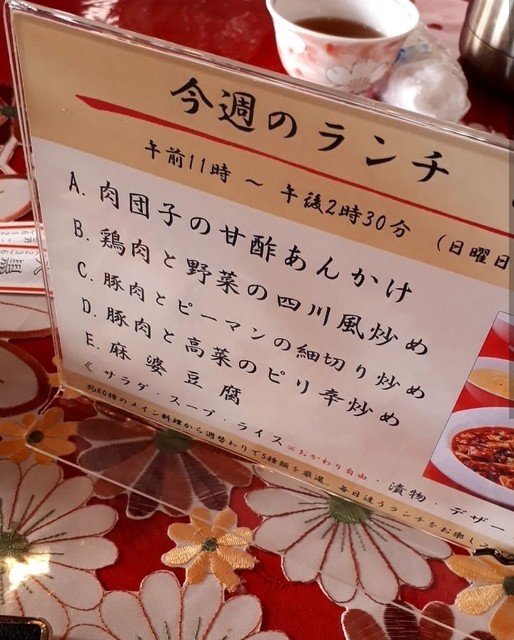 今週のランチ
午前11時 ～ 午後2時30分 (日曜日
A. 肉団子の甘酢あんかけ
B. 鶏肉と野菜の四川風炒め
C. 豚肉とピーマンの細切り炒め
D. 豚肉と高菜のピリ辛炒め
E. 麻婆豆腐
《 サラダ・スープ・ライス※おかわり自由・漬物・デザー
約80種のメイン料理から週替わりで5種類を厳選。毎日違うランチをお楽し